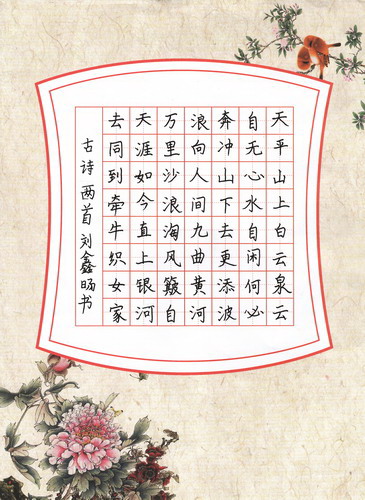 天平山上白云泉云
自无心水自闲何必
奔冲山下去更添波
浪向人间九曲黄河
万里沙浪淘风簸自
天涯如今直上银河
去同到牵牛织女家
古诗两首 刘鑫书